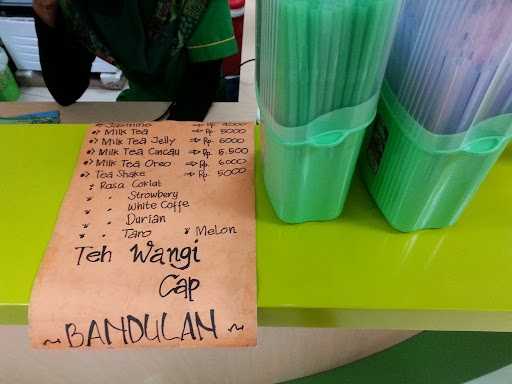 Jasmine => Rp. 4000
Milk Tea => Rp. 5000
Milk Tea Jelly => Rp. 6000
Milk Tea Cancau => Rp. 5.500
Milk Tea Oreo => Rp. 6.000
Tea Shake => Rp. 5000
Rasa Coklat
" Strowbery
" White Coffe
" Durian
" Taro * Melon
Teh Wangi
Cap
~ BANDULAN ~